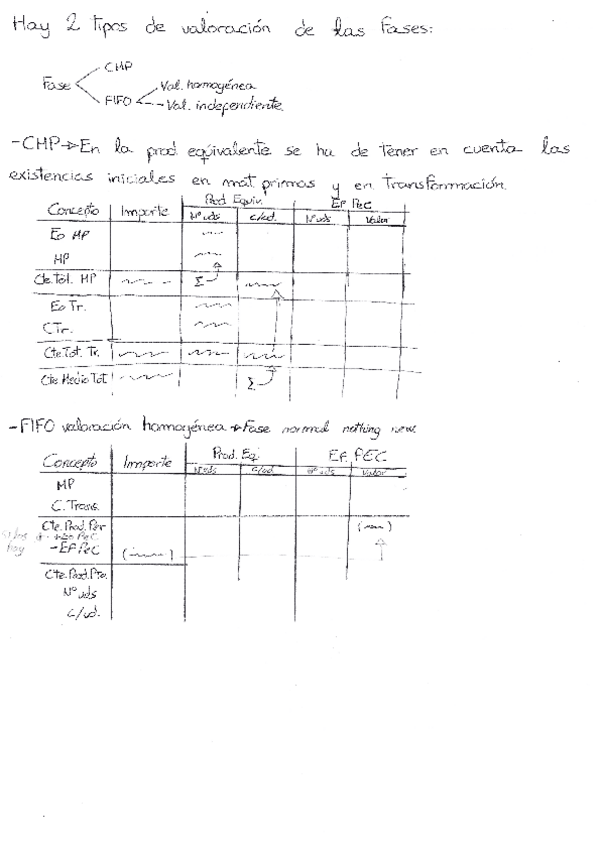 Hay 2 tipos de valoración de las fases:
CMP
Fase
Val. homogénea
FIFO
Val. independiente
-CMP→En la prod eqüivalente se ha de tener en cuenta las
existencias iniciales en mat primas y en transformación.
Prod Equiv. EF PeC
Concepto Importe Nº uds c/ud. Nº uds Valor
Eo MP
MP
Cte.Tot. MP Σ
Eo Tr.
CTr.
Cte Tot. Tr.
Cte Medio Tot Σ
-FIFO valoración homogénea→Fase normal nothing new
Concepto Importe Prod. Eq. EF PEC
Nº uds c/ud. nº uds Valor
MP
C. Trans.
Cte. Prod. Per
hay -EF PeC
Cte. Prod. Pte.
Nº uds
c/ud.